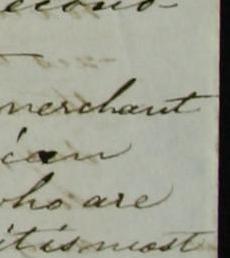 econd-
merchant
ican
who are
it is most